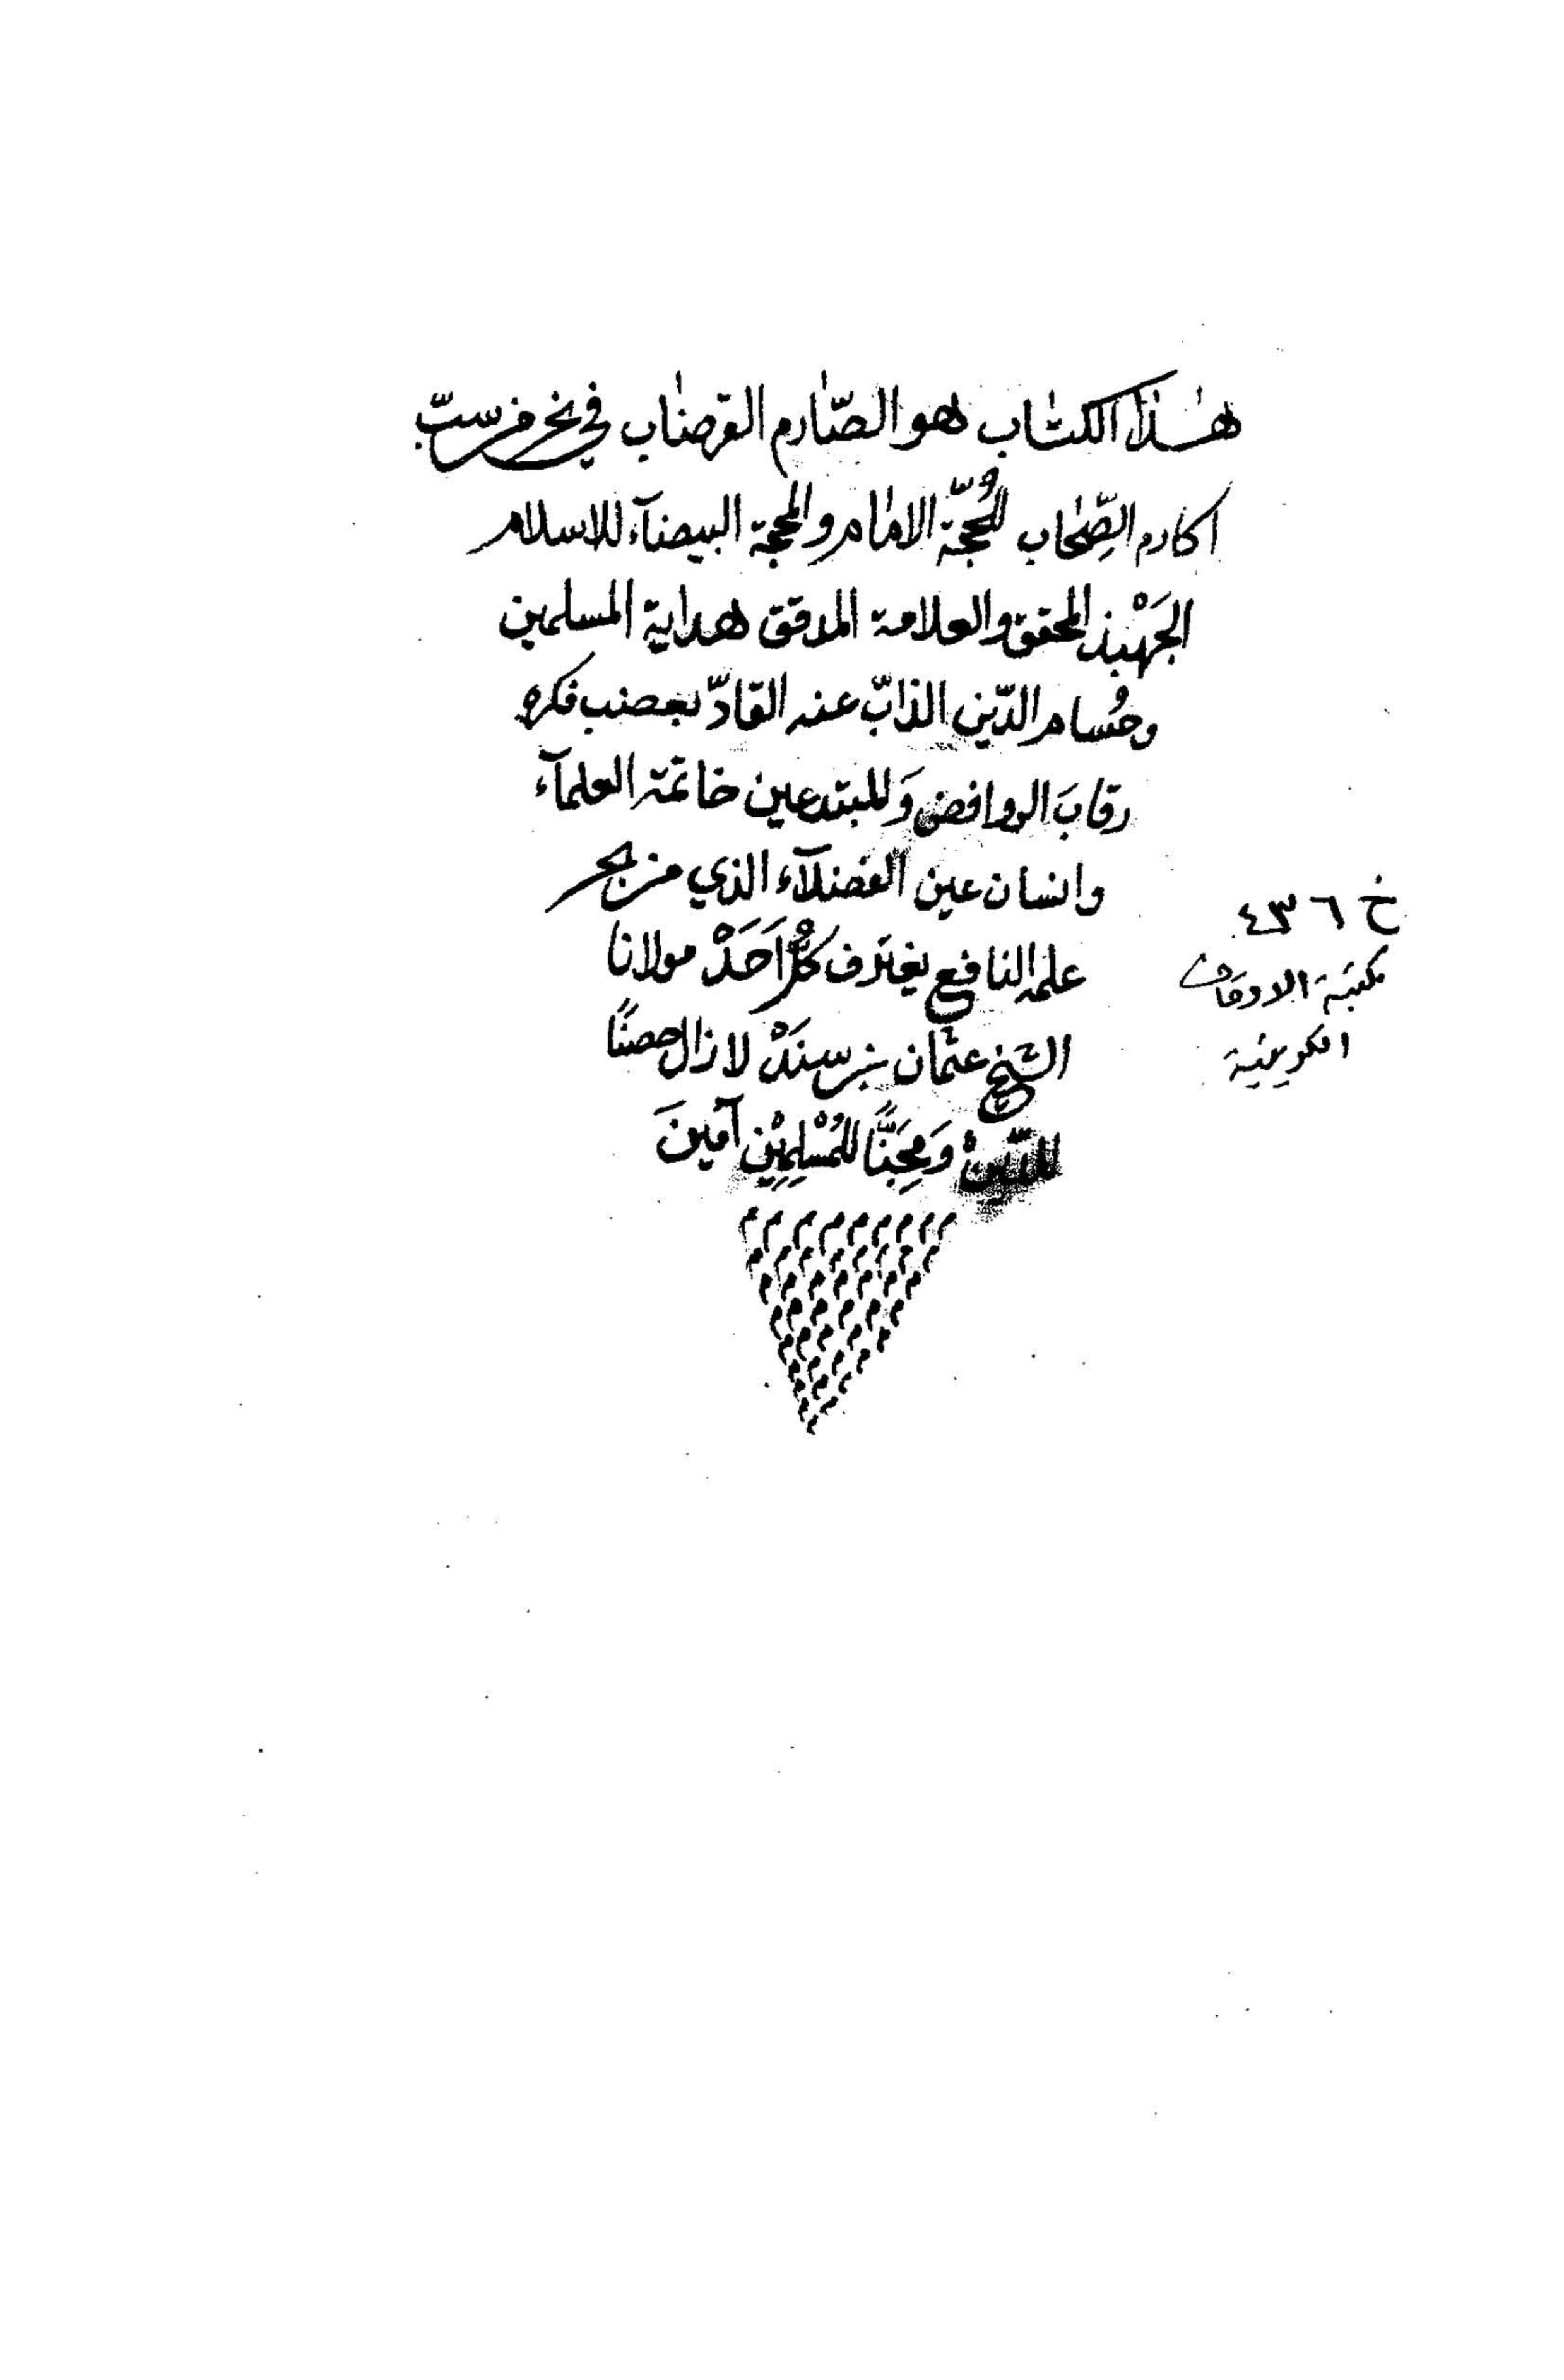 هٰذا الكتاب هو الصّارم القرضاب في نحر من سبّ
اكارم الصِّحاب للحُجّة الامام والمحجة البيضآء للاسلام
الجَهْبذ المحقق والعلامة المدقق هداية المسلمين
وحُسام الدّين الذابّ عنه القادّ بعضب فكره
رقابَ الروافض وَالمبتدعين خاتمة العلمآء
وانسان عين الفضلآء الذي من بحر
علمه النافع يغترف كلُّ اَحَدْ مولانا
الشيخ عثمان بن سنَدْ لا زال حصنًا
للدّينْ وَمِجَنًّا للمُسْلِمِيْن آمينَ
م م م م م م م م م
خ ٤٣٦
مكتبة الاوقاف
الكويتية